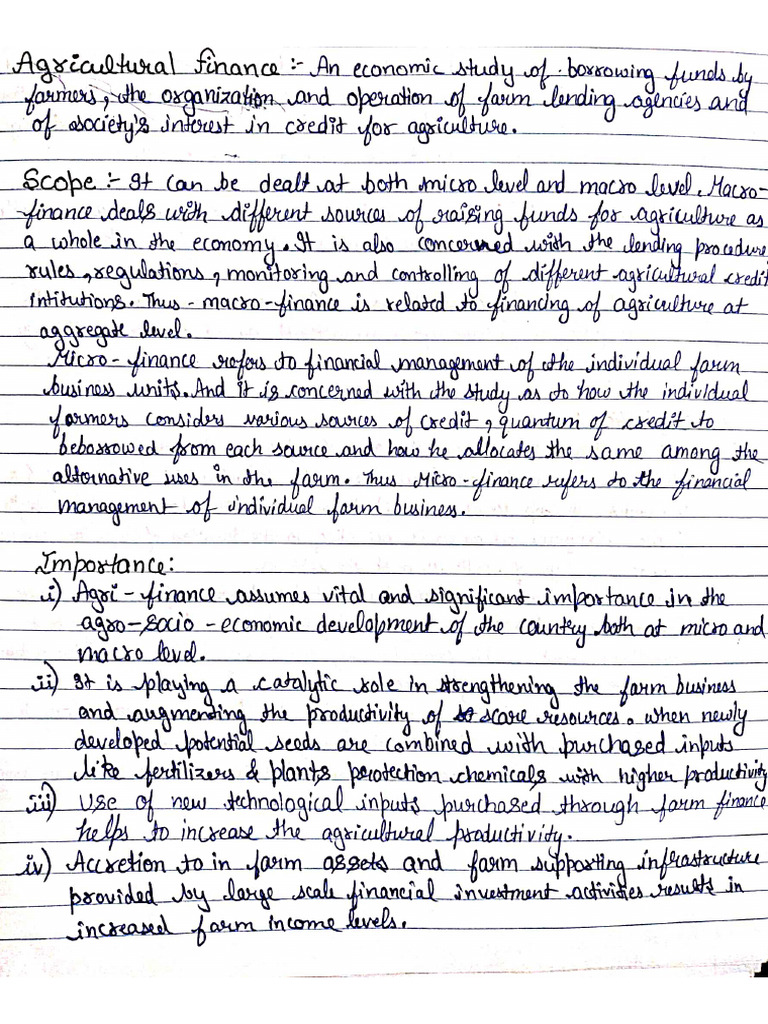 Agricultural finance :- An economic study of borrowing funds by
farmers, the organization and operation of farm lending agencies and
of society's interest in credit for agriculture.
Scope :- It can be dealt at both micro level and macro level. Macro-
finance deals with different sources of raising funds for agriculture as
a whole in the economy. It is also concerned with the lending procedure,
rules, regulations, monitoring and controlling of different agricultural credit
intitutions. Thus - macro-finance is related to financing of agriculture at
aggregate level.
Micro-finance refers to financial management of the individual farm
business units. And it is concerned with the study as to how the individual
farmers considers various sources of credit, quantum of credit to
beborrowed from each source and how he allocates the same among the
alternative uses in the farm. Thus Micro-finance refers to the financial
management of individual farm business.
Importance:
i) Agri-finance assumes vital and significant importance in the
agro-socio-economic development of the country both at micro and
macro level.
ii) It is playing a catalytic role in strengthening the farm business
and augmenting the productivity of scare resources. When newly
developed potential seeds are combined with purchased inputs
like fertilizers & plants protection chemicals with higher productivity
iii) Use of new technological inputs purchased through farm finance
helps to increase the agricultural productivity.
iv) Accretion to in farm assets and farm supporting infrastructure
provided by large scale financial investment activities results in
increased farm income levels.